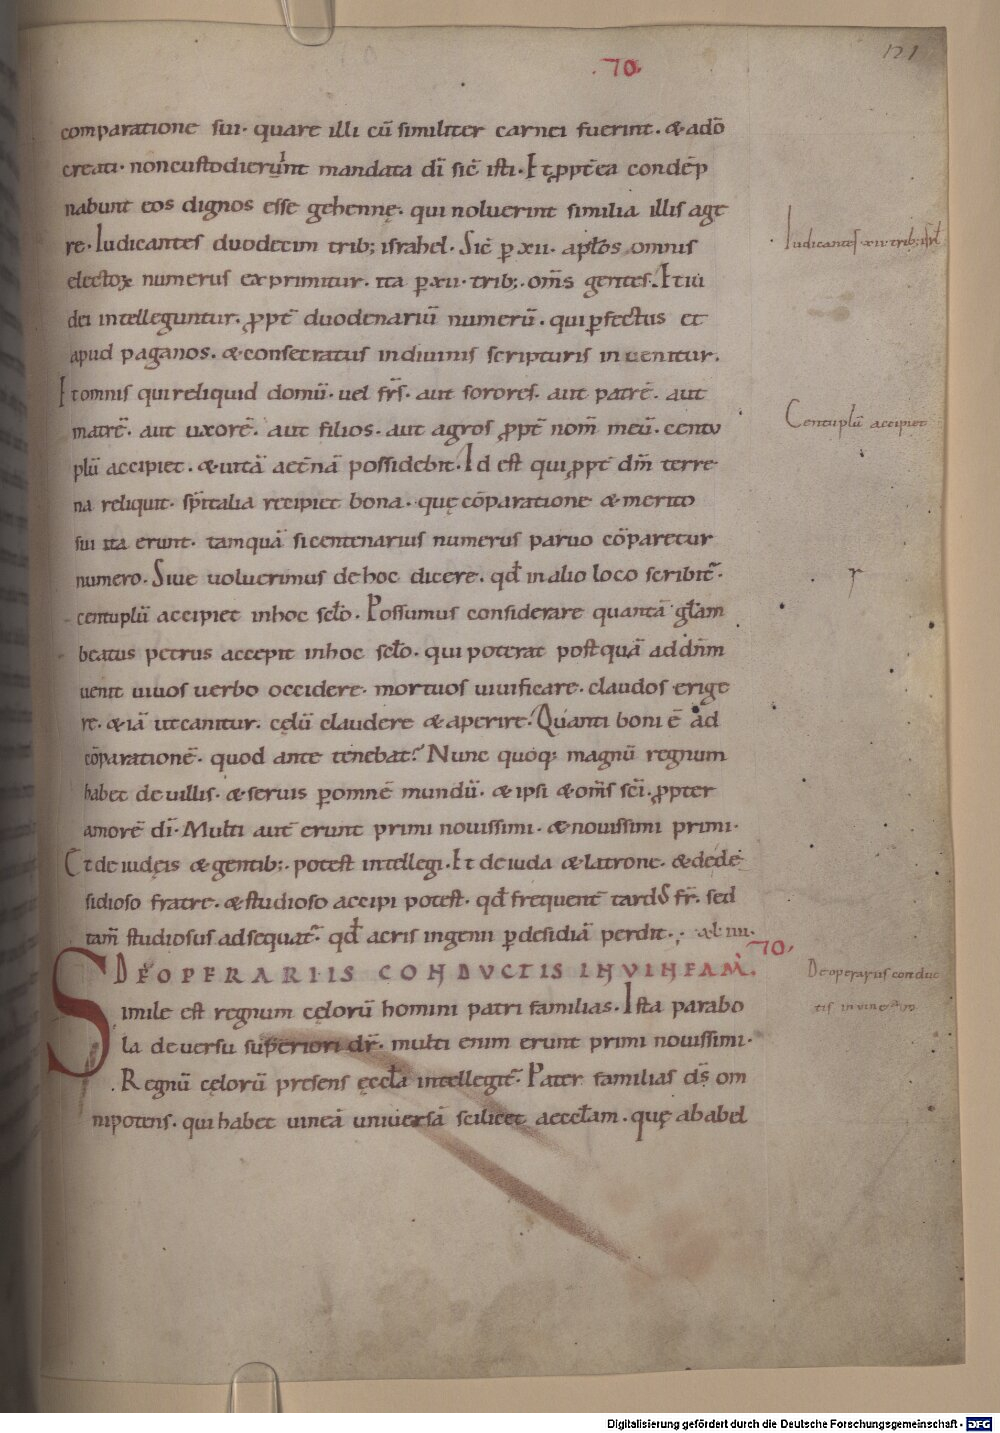 .70.
121
comparatione sui· quare illi cū similiter carnei fuerint. & adō
creati· non custodierunt mandata dī sic̄ isti· Et ꝓpt̄ea condēp
nabunt eos dignos esse gehennę. qui noluerint similia illis age
re· Iudicantes duodecim trib; israhel. Sic̄ ꝑ xii. apłos omnis
electoꝝ numerus exprimitur. ita ꝑ xii· trib;. om̄s gentes.
dei intelleguntur. ꝓpt̄ duodenariū numerū. qui ꝑfectus et
apud paganos. & consecratus in diuinis scripturis inuenitur.
Et omnis qui reliquid domū. uel fr̄s. aut sorores. aut patrē. aut
matrē. aut uxorē. aut filios. aut agros ꝓpt̄ nom̄ meū. centu
plū accipiet. & uitā aet̄nā possidebit. Id est qui ꝓpt̄ dm̄ terre
na reliquit. sp̄italia recipiet bona. quę cōparatione & merito
sui ita erunt. tamquā si centenarius numerus paruo cōparetur
numero. Siue uoluerimus de hoc dicere. qđ in alio loco scribit̄.
centuplū accipiet in hoc scło. Possumus considerare quantā głam
beatus petrus accepit in hoc scło. qui poterat postquā ad dn̄m
uenit uiuos uerbo occidere. mortuos uiuificare. claudos erige
re. & iā ut canitur. cęlū claudere & aperire. Quanti boni ē ad
cōparationē. quod ante tenebat? Nunc quoq; magnū regnum
habet de uillis. & seruis ꝑ omnē mundū. & ipsi & om̄s sc̄i. ꝓpter
amorē dī. Multi aut̄ erunt primi nouissimi. & nouissimi primi.
Et de iudęis & gentib;. potest intellegi. Et de iuda & latrone. & de de
sidioso fratre. & studioso accipi potest. qđ frequent̄ tardꝰ fr̄. sed
tam̄ studiosus adsequat̄. qđ acris ingenii ꝑ desidiā perdit.
70.
DE OPERARIIS CONDVCTIS IN VINEAM.
Simile est regnum cęlorū homini patri familias. Ista parabo
la de uersu superiori dr̄. multi enim erunt primi nouissimi.
Regnū cęlorū presens ęccła intellegit̄. Pater familias ds̄ om
nipotens. qui habet uineā uniuersā scilicet aeccłam. quę ab abel
Iudicantes xii trib; isrł
Centuplū accipiet
r
De operariis conduc
tis in vineam
Digitalisierung gefördert durch die Deutsche Forschungsgemeinschaft - DFG